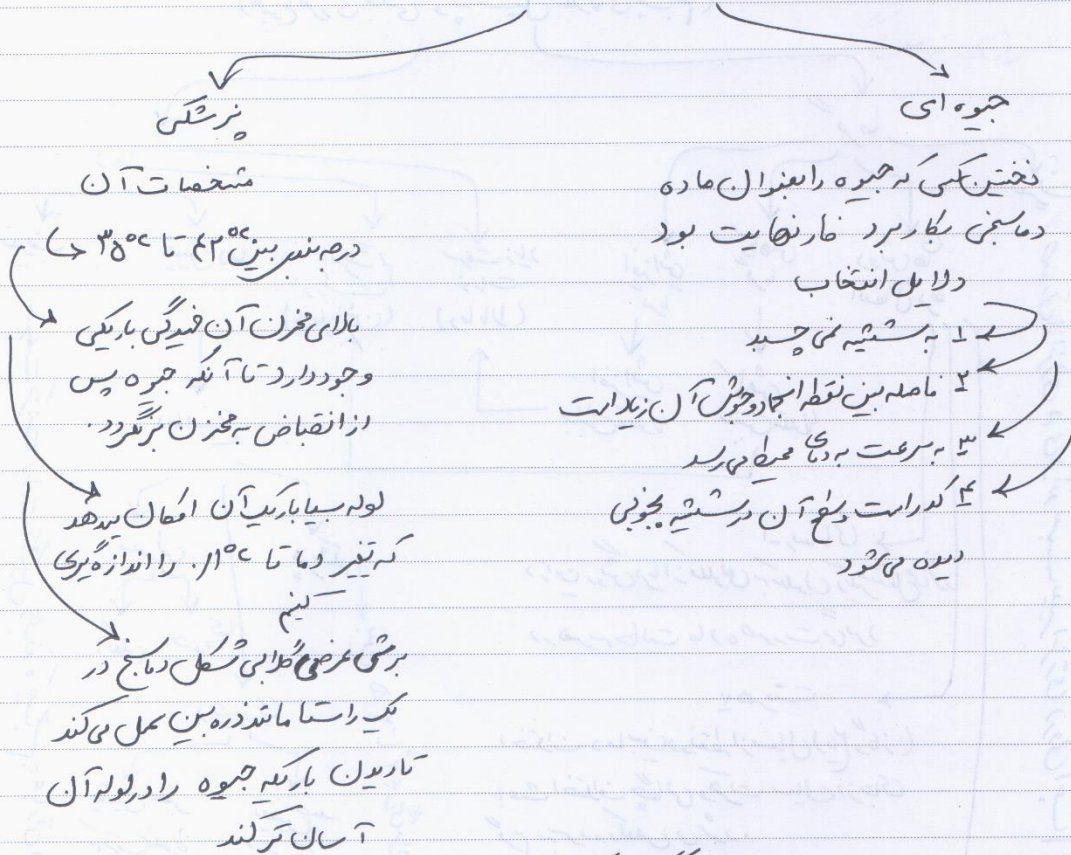 جیوه ای
نخستین کسی که جیوه را بعنوان ماده
دماسنجی بکار برد فارنهایت بود
دلایل انتخاب
۱ به شیشه نمی چسبد
۲ فاصله بین نقطه انجماد و جوش آن زیاد است
۳ به سرعت به دمای محیط می رسد
۴ کدر است و سطح آن در شیشه بخوبی
دیده می شود
پزشکی
مشخصات آن
درجه بندی بین ۴۲°c تا ۳۵°c
بالای مخزن آن خمیدگی باریکی
وجود دارد تا آنکه جیوه پس
از انقباض به مخزن برنگردد.
لوله بسیار باریک آن امکان میدهد
که تغییر دما تا ۰/۱°c را اندازه گیری
کنیم
برش عرضی گلابی شکل دماسنج در
یک راستا مانند ذره بین عمل می کند
تا دیدن باریکه جیوه را در لوله آن
آسان تر کند